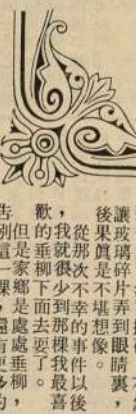 讓玻璃碎片弄到眼睛裏，
後果眞是不堪想像。
從那次不幸的事件以後
，我就很少到那棵我最喜
歡的垂柳下面去耍了。
但是家鄉是處處垂柳，
告別這一棵，還有更多的